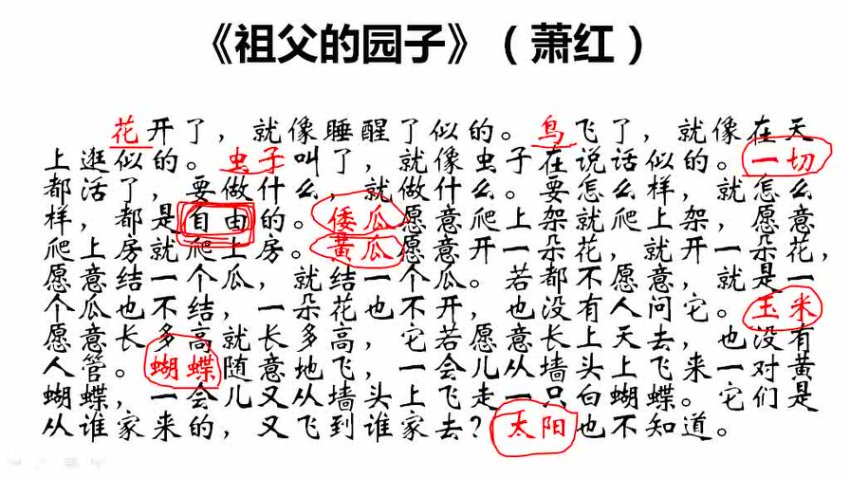 《祖父的园子》（萧红）
花开了，就像睡醒了似的。鸟飞了，就像在天
上逛似的。虫子叫了，就像虫子在说话似的。一切
都活了，要做什么，就做什么。要怎么样，就怎么
样，都是自由的。倭瓜愿意爬上架就爬上架，愿意
爬上房就爬上房。黄瓜愿意开一朵花，就开一朵花，
愿意结一个瓜，就结一个瓜。若都不愿意，就是一
个瓜也不结，一朵花也不开，也没有人问它。玉米
愿意长多高就长多高，它若愿意长上天去，也没有
人管。蝴蝶随意地飞，一会儿从墙头上飞来一对黄
蝴蝶，一会儿又从墙头上飞走一只白蝴蝶。它们是
从谁家来的，又飞到谁家去？太阳也不知道。